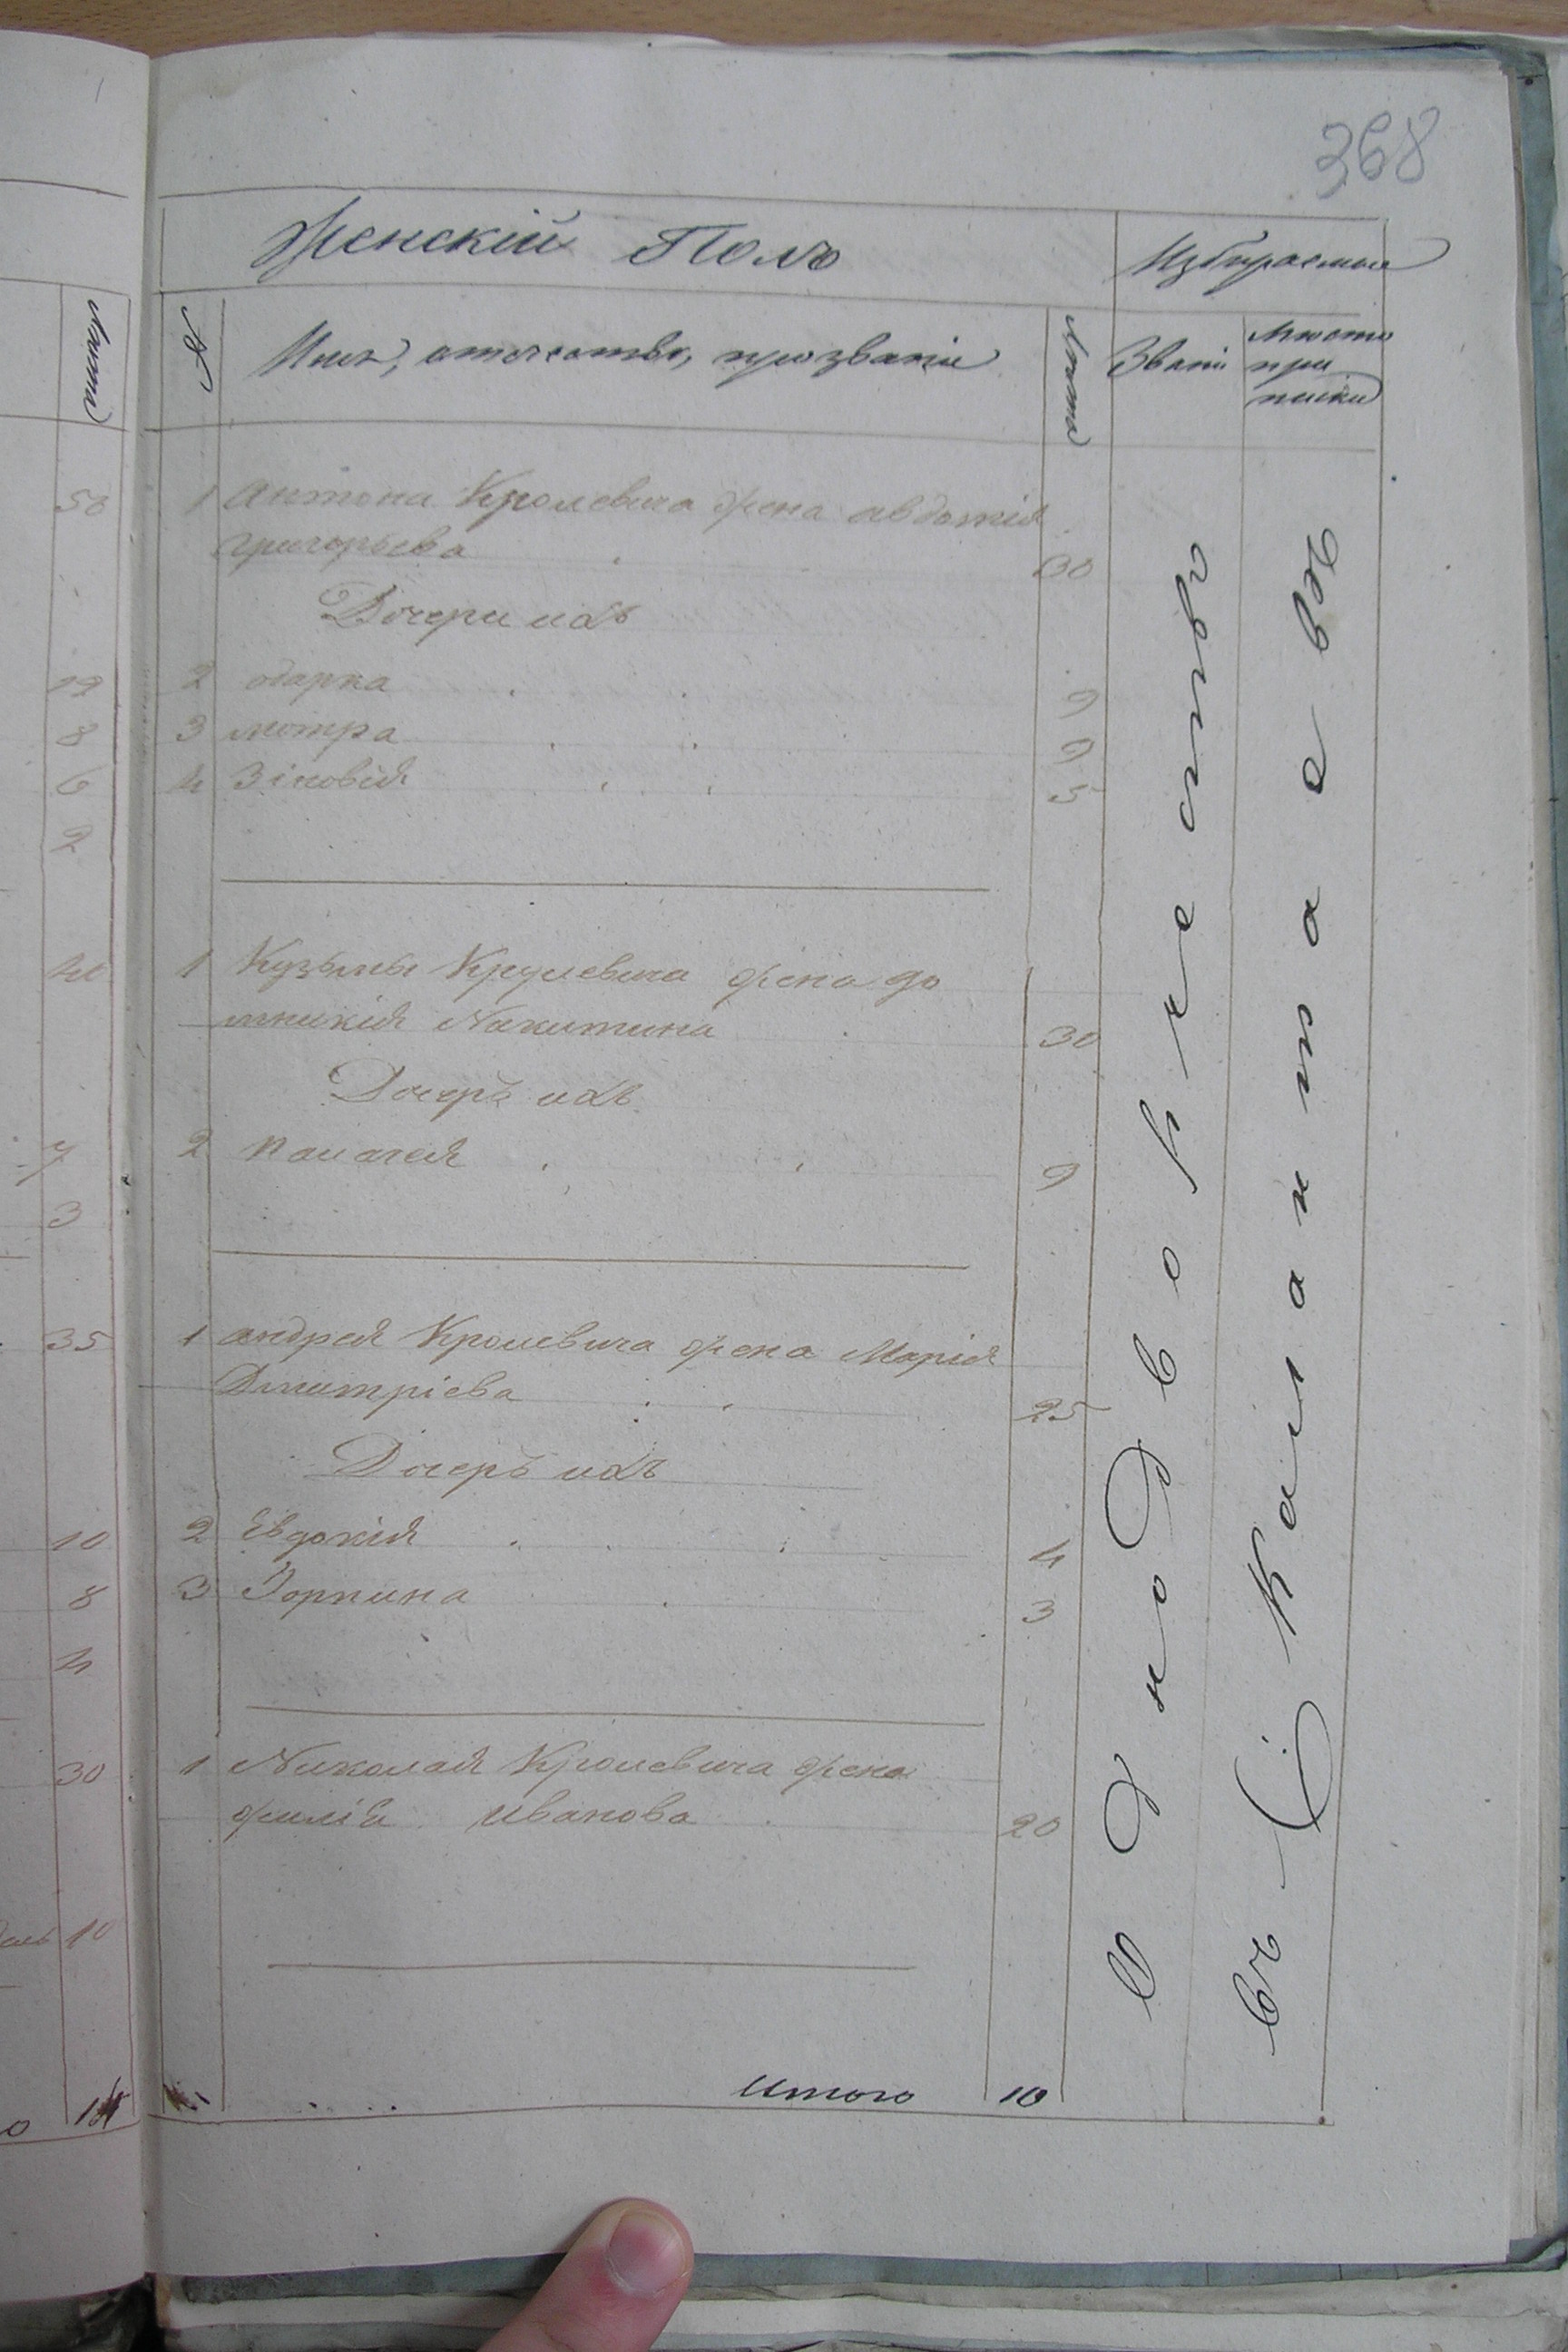 368
Женскій Полъ
Избираемыя
№
Имя, отечество, прозваніе
Лѣта
Званіе
Мѣсто
при
писки
1 Антона Кролевича жена авдотія
григорьева 30
Дочери ихъ
2 одарка 9
3 мотра 9
4 Зіновія 5
1 Кузьмы Крулевича жена до
мникія Никитина 30
Дочерь ихъ
2 Палагея 9
1 андрея Кролевича жена Марія
Дмитріева 25
Дочерь ихъ
2 Евдокія 4
3 Горпина 3
1 Николая Кролевича жена
Иванова 20
Итого 10
Однодворчество
въ Калантаевѣ
Лѣта
58
19
8
6
2
7
3
35
10
8
4
30
10